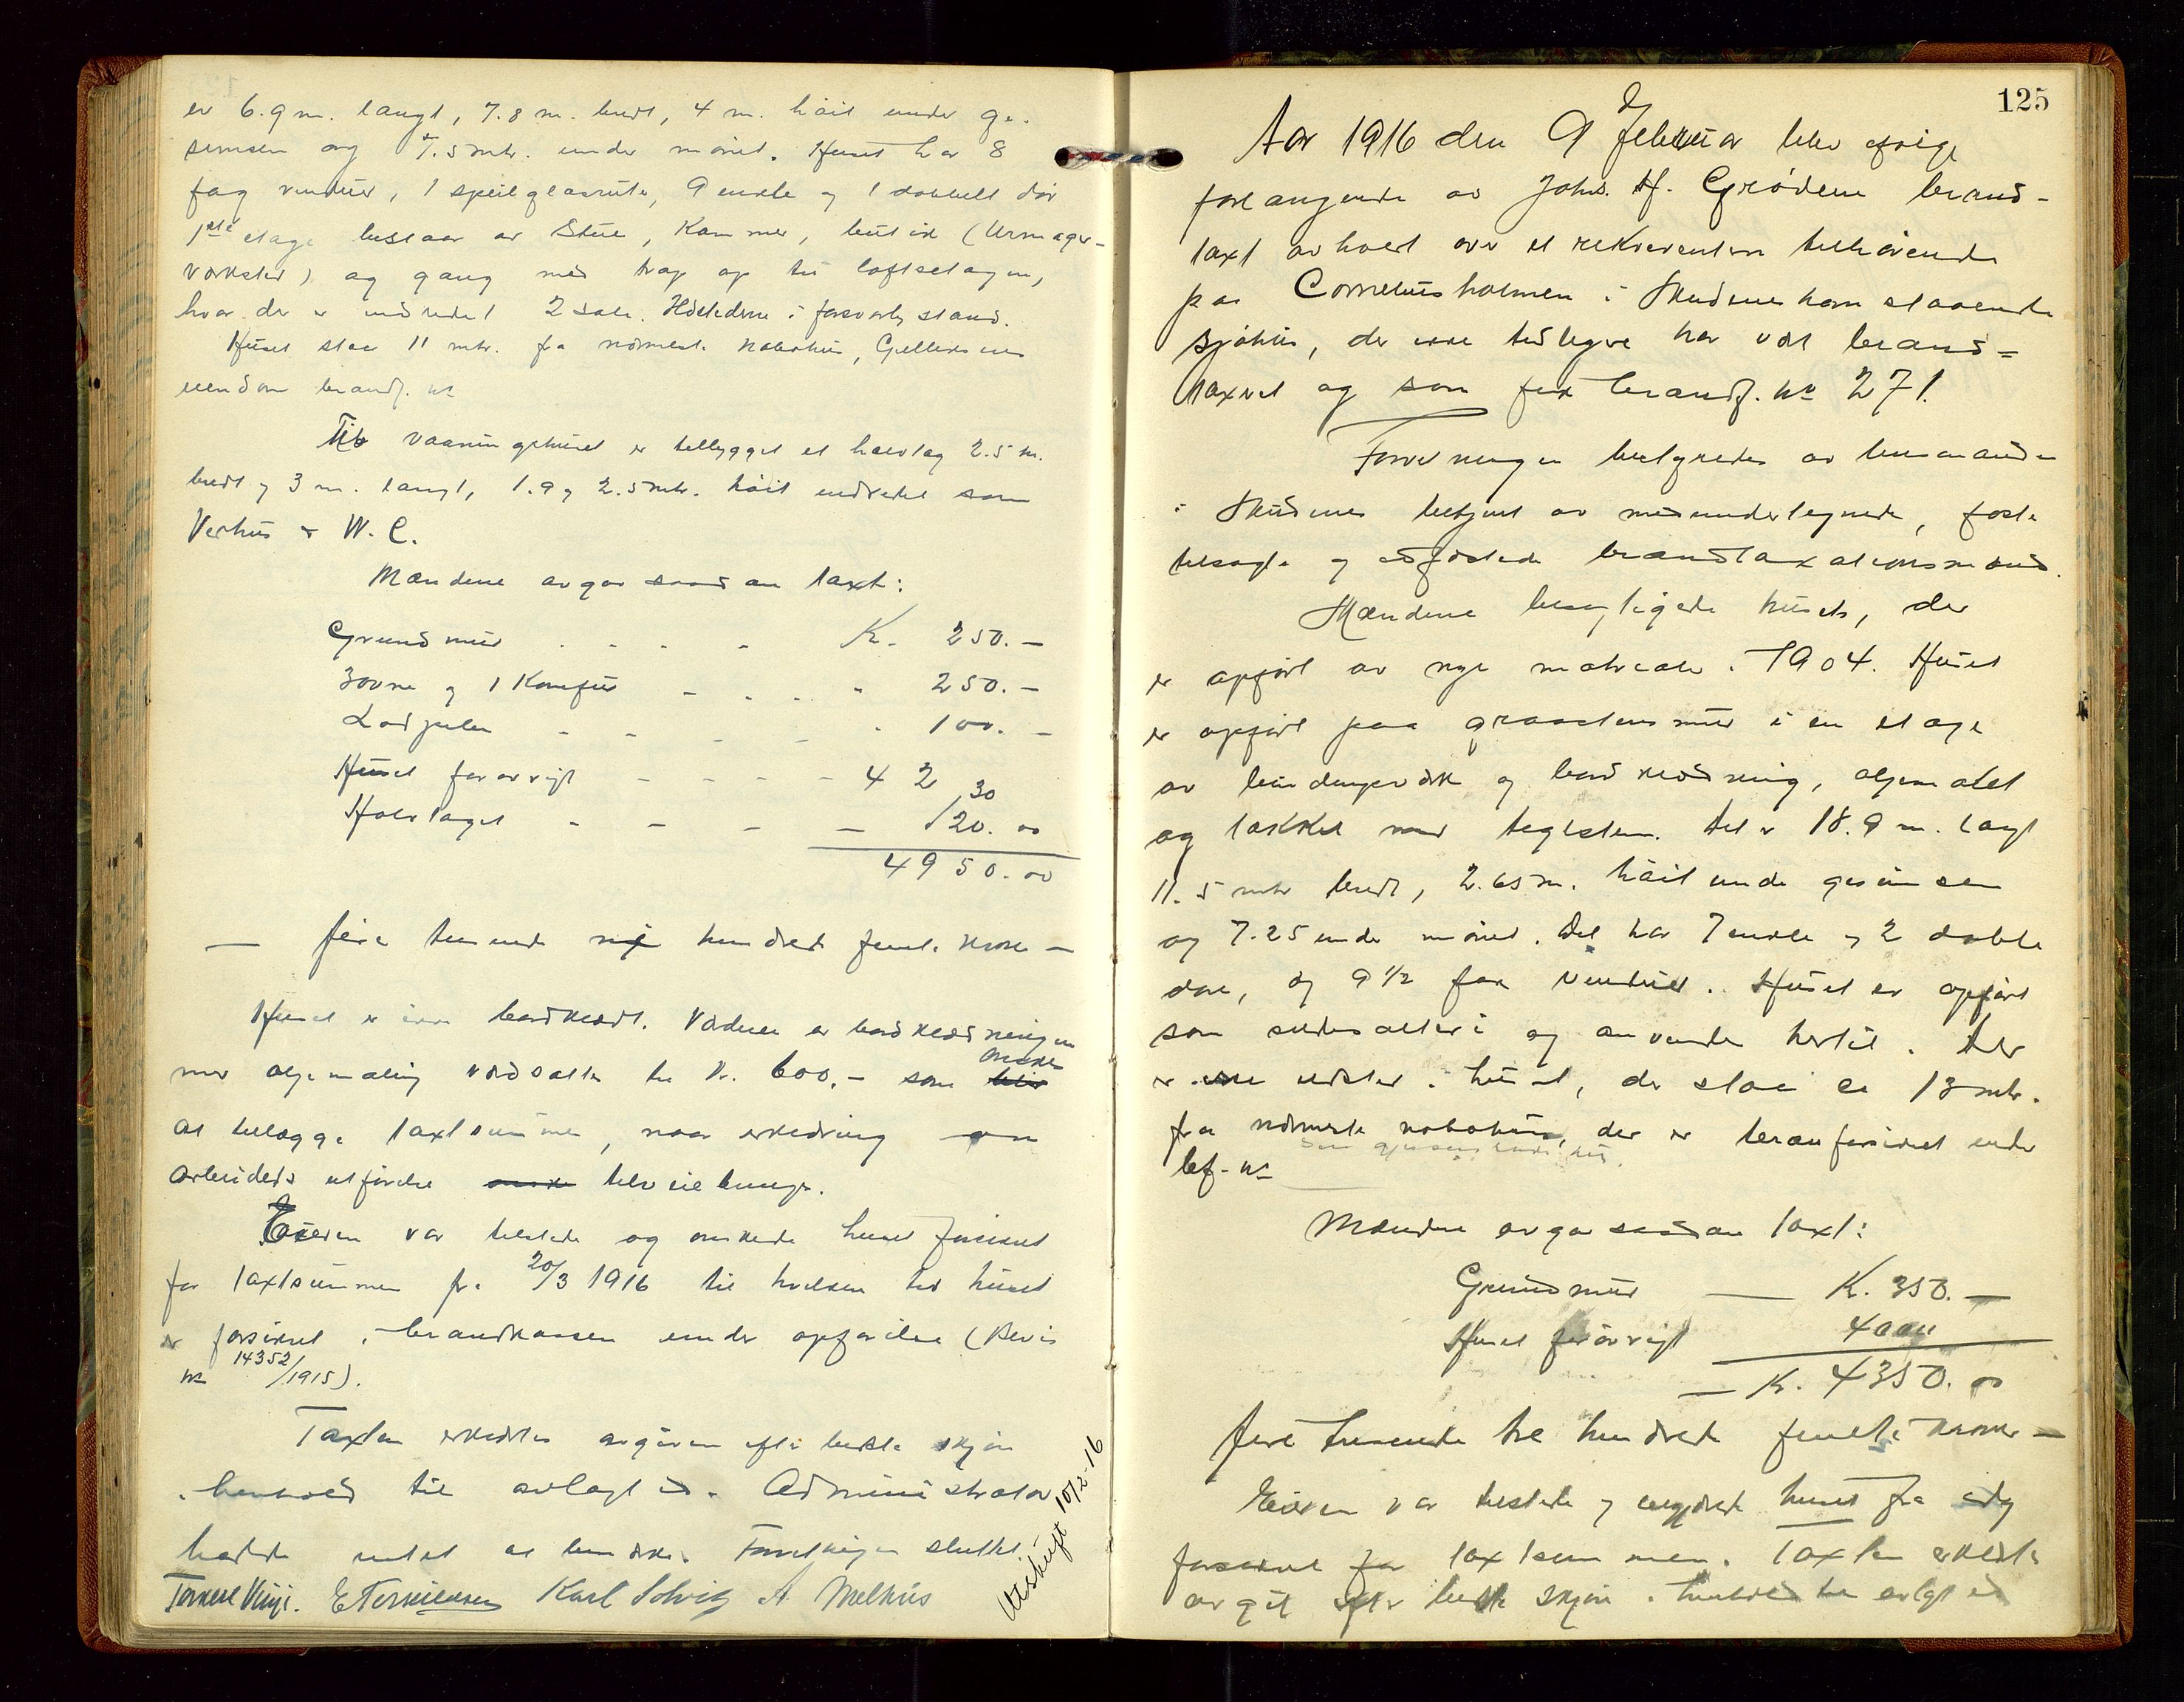 er 6.9 m. langt, 7.8 m. bredt, 4 m. høit under ge-
simsen og 7.5 mtr. under mønet. Huset har 8
fag vinduer, 1 speilglasrute, 9 enkle og 1 dobbelt dør
1ste etage bestaar av Stue, Kammer, butik (Urmager-
verksted) og gang med trap op til loftsetagen,
hvor der er indredet 2 sale. Ildstederne i forsvarlig stand.
Huset staar 11 mtr. fra nærmeste nabohus,
eiendom brandf. no
Til vaaningshuset er tilbygget et halvtag 2.5 m.
bredt og 3 m. langt, 1.9 og 2.5 mtr. høit indredet som
W. C.
Mændene avgav saadan taxt:
Grundmur Kr. 250.-
3 ovne og 1 Komfur 250.-
Lodpiber 100.-
Huset forøvrigt 4230
Halvtaget 120.00
4950.00
— fire tusinde ni hundrede femti kroner —
Huset er ikke bordklædt. Værdien av bordklædningen
med oljemaling værdsattes til Kr. 600.- som ønskes
at tillægge taxtsummen, naar erklæring om
arbeidets utførelse blir tilbragt.
Eieren var tilstede og ønskede huset forsikret
for taxtsummen fra 20/3 1916 til hvilken tid huset
er forsikret i brandkassen under opførelse (Bevis
no 14352/1915).
Taxten erklæres avgiven efter bedste skjøn
i henhold til avlagt ed. Administrator
hadde intet at bemærke. Forretningen sluttet.
Torkel Vinje. E Torkildsen Karl Solvig A. Melhus
Utskrift 10/2-16
125
Aar 1916 den 9 februar blev efter
forlangende av Johs. H. Grødem brand-
taxt avholdt over et rekvirenten tilhørende
paa Corneliusholmen i Skudeneshavn staaende
sjøhus, der ikke tidligere har vært brand-
taxert og som fik brandf. no 271.
Forretningen bestyredes av lensmanden
i Skudenes betjent av medundertegnede, faste
tilsagte og edfæstede brandtaxationsmænd.
Mændene besigtigede huset, der
er opført av nye materialer i 1904. Huset
er opført paa graastensmur i en etage
av bindingsverk og bordklædning, oljemalet
og tækket med teglsten. Det er 18.9 m. langt
11.5 mtr bredt, 2.65 m. høit under gesimsen
og 7.25 under mønet. Det har 7 enkle og 2 doble
døre, og 9 1/2 fag vinduer. Huset er opført
som sildesalteri og anvendes hertil. Der
er ikke ildsted i huset, der staar ca 13 mtr.
fra nærmeste nabohus, der er brandforsikret under
bf. no
Mændene avgav saadan taxt:
Grundmur — K. 350.—
Huset forøvrigt 4000
— K. 4350.00
fire tusinde tre hundrede femti kroner —
Eieren var tilstede og begjærte huset fra idag
forsikret for taxtsummen. Taxten erklæres
avgit efter bedste skjøn i henhold til avlagt ed